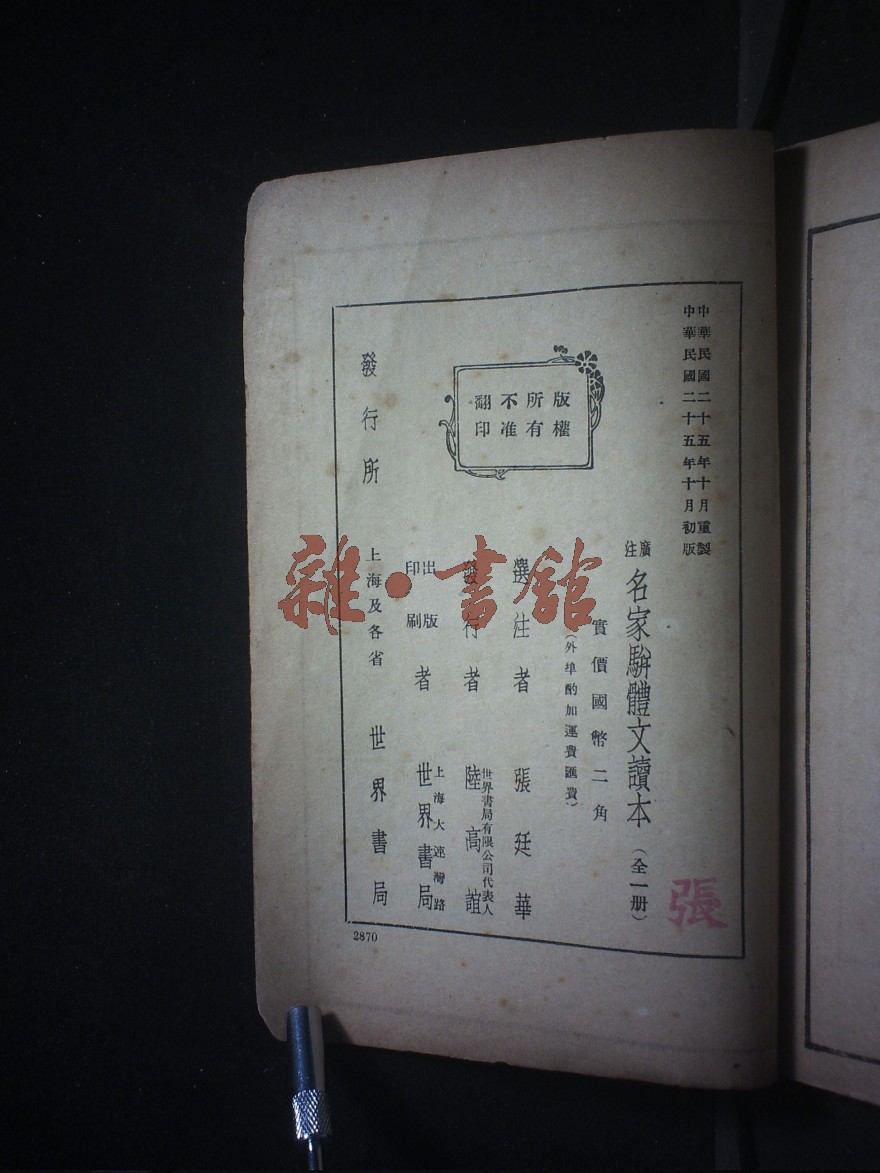 中華民國二十五年十月重製
中華民國二十五年十月初版
廣注 名家駢體文讀本 (全一册)
實價國幣二角
(外埠酌加運費匯費)
選注者 張廷華
發行者 世界書局有限公司代表人 陸高誼
出版印刷者 上海大連灣路 世界書局
發行所 上海及各省 世界書局
版權
所有
不准
翻印
張
2870
雜·書館